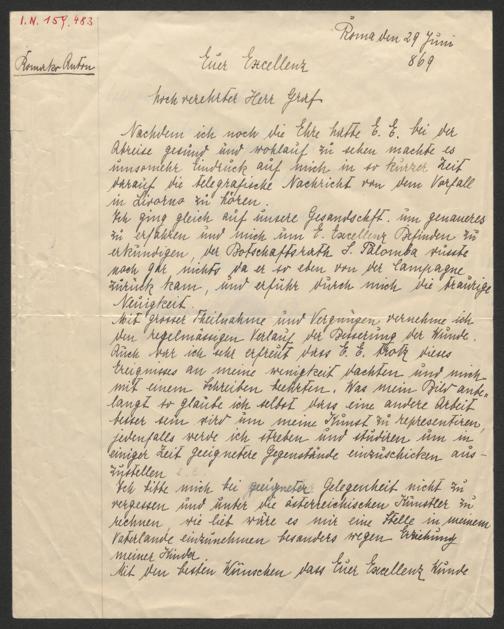 I.N. 159.483
Roma den 29 Juni
869
Romako Anton
Euer Excellenz
hoch verehrter Herr Graf
Nachdem ich noch die Ehre hatte E. E. bei der
Abreise gesund und wohlauf zu sehen machte es
umsomehr Eindruck auf mich in so kurzer Zeit
darauf die telegrafische Nachricht von dem Vorfall
in Livorno zu hören.
Ich ging gleich auf unsere Gesandschft. um genaueres
zu erfahren und mich um E. Excellenz Befinden zu
erkundigen, der Botschaftsrath S. Palomba wusste
noch gar nichts da er so eben von der Campagne
zurück kam, und erfuhr durch mich die traurige
Neuigkeit.
Mit grosser Theilnahme und Vergnügen vernehme ich
den regelmässigen Verlauf der Besserung der Wunde.
Auch war ich sehr erfreut dass E. E. trotz dieses
Ereignisses an meine wenigkeit dachten und mich
mit einem Schreiben beehrten. Was mein Bild anbe-
langt so glaube ich selbst dass eine andere Arbeit
besser sein wird um meine Kunst zu representiren,
jedenfalls werde ich streben und studiren um in
einiger Zeit geeignetere Gegenstände einzuschicken aus-
zustellen
Ich bitte mich bei geeigneter Gelegenheit nicht zu
vergessen und unter die österreichischen Künstler zu
rechnen, wie lieb wäre es mir eine Stelle in meinem
Vaterlande einzunehmen besonders wegen Erziehung
meiner Kinder.
Mit den besten Wünschen dass Euer Excellenz Wunde